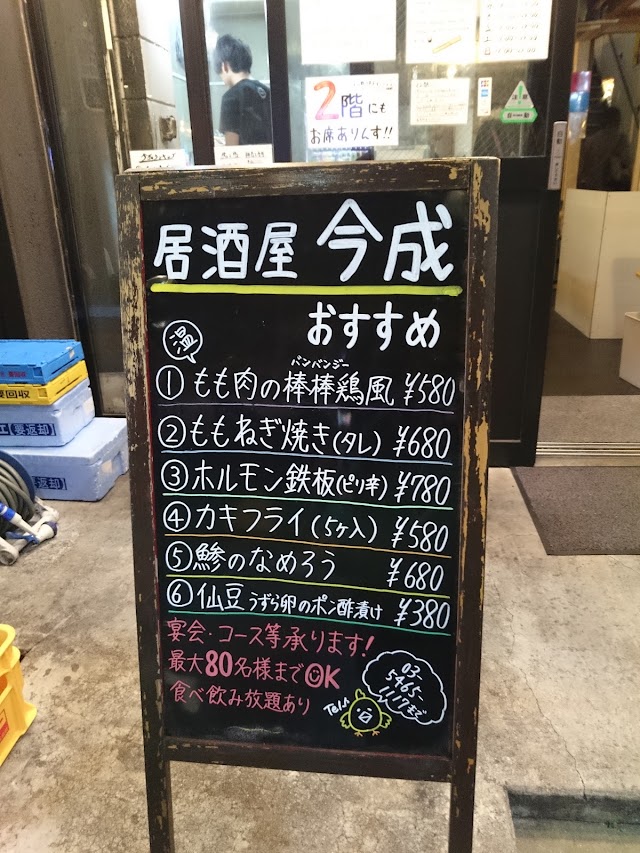 2階にも
お席ありんす!!
居酒屋 今成
おすすめ
温
バンバンジー
①もも肉の棒棒鶏風 ¥580
②ももねぎ焼き(タレ) ¥680
③ホルモン鉄板(ピリ辛) ¥780
④カキフライ(5ヶ入) ¥580
⑤鯵のなめろう ¥680
⑥仙豆 うずら卵のポン酢漬け ¥380
宴会・コース等承ります!
最大80名様までOK
食べ飲み放題あり
Tell
03-
5465-
1117まで
要回収
工【要返却】
【要返却】
自動